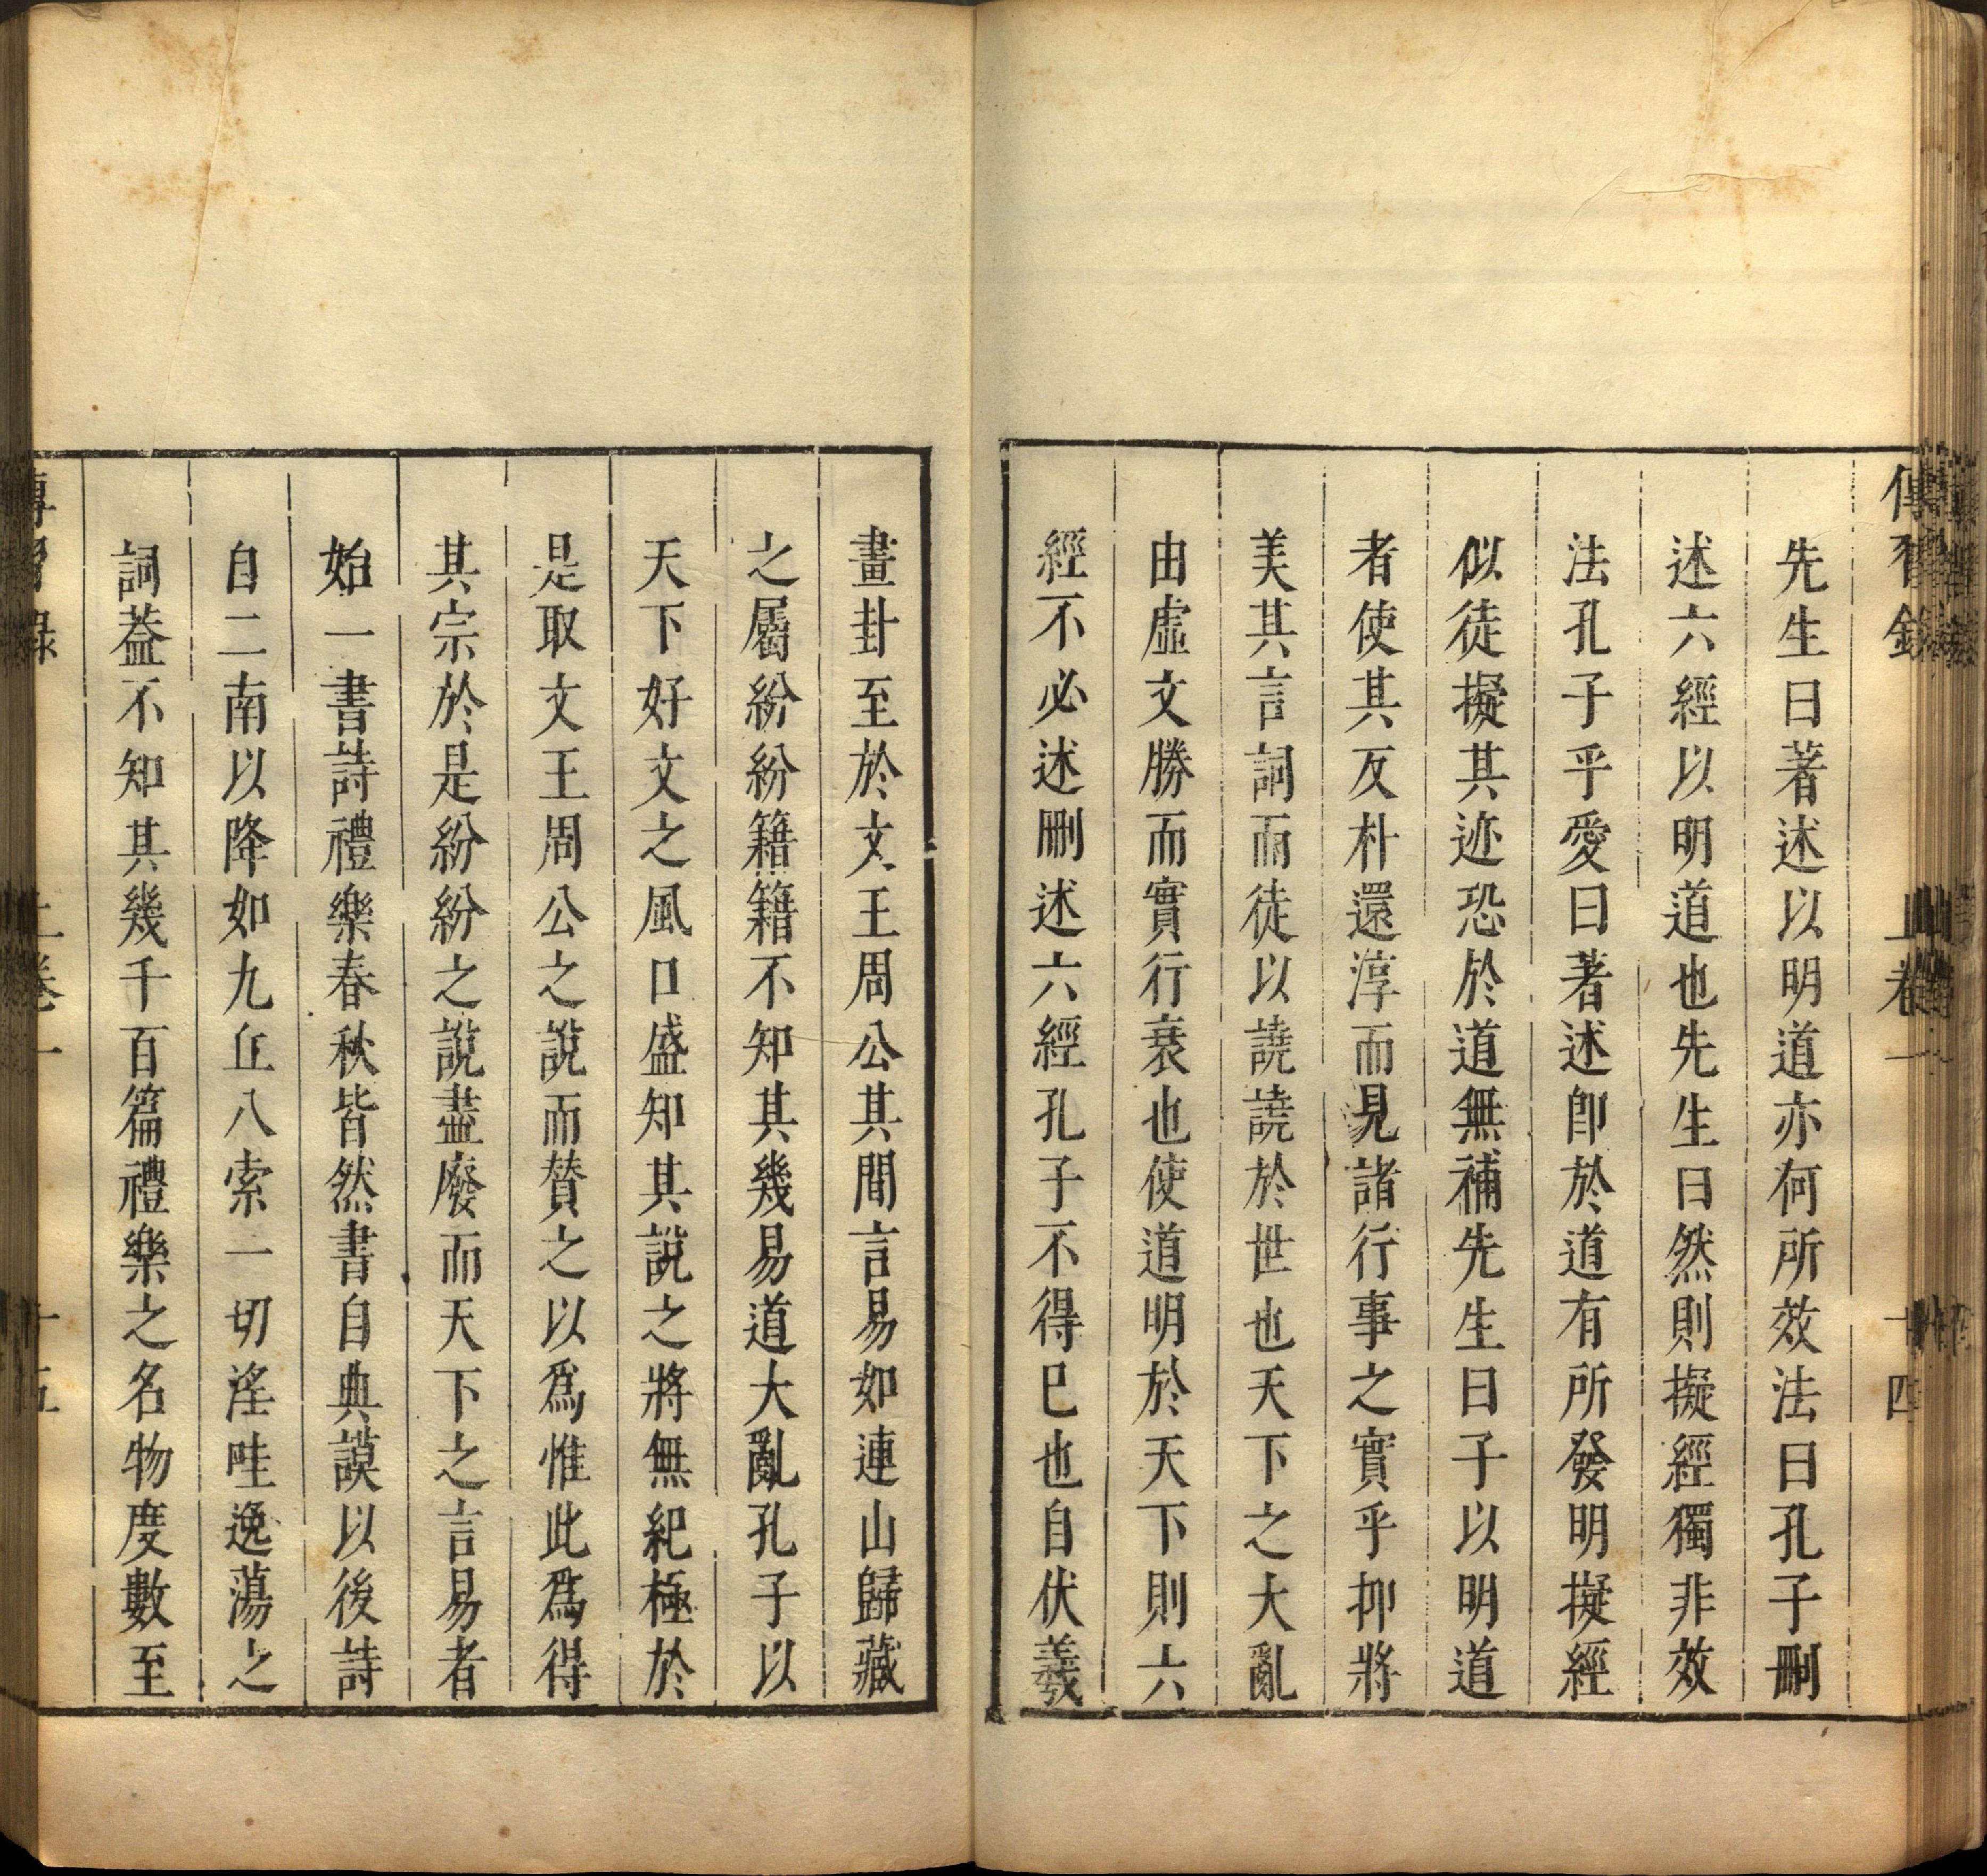 傳習錄 上卷一 十四
先生曰著述以明道亦何所效法曰孔子刪
述六經以明道也先生曰然則擬經獨非效
法孔子乎愛曰著述卽於道有所發明擬經
似徒擬其迹恐於道無補先生曰子以明道
者使其反朴還淳而見諸行事之實乎抑將
美其言詞而徒以譊譊於世也天下之大亂
由虛文勝而實行衰也使道明於天下則六
經不必述刪述六經孔子不得已也自伏羲
畫卦至於文王周公其間言易如連山歸藏
之屬紛紛籍籍不知其幾易道大亂孔子以
天下好文之風日盛知其說之將無紀極於
是取文王周公之說而贊之以爲惟此爲得
其宗於是紛紛之說盡廢而天下之言易者
始一書詩禮樂春秋皆然書自典謨以後詩
自二南以降如九丘八索一切淫哇逸蕩之
詞葢不知其幾千百篇禮樂之名物度數至
傳習錄 上卷一 十五